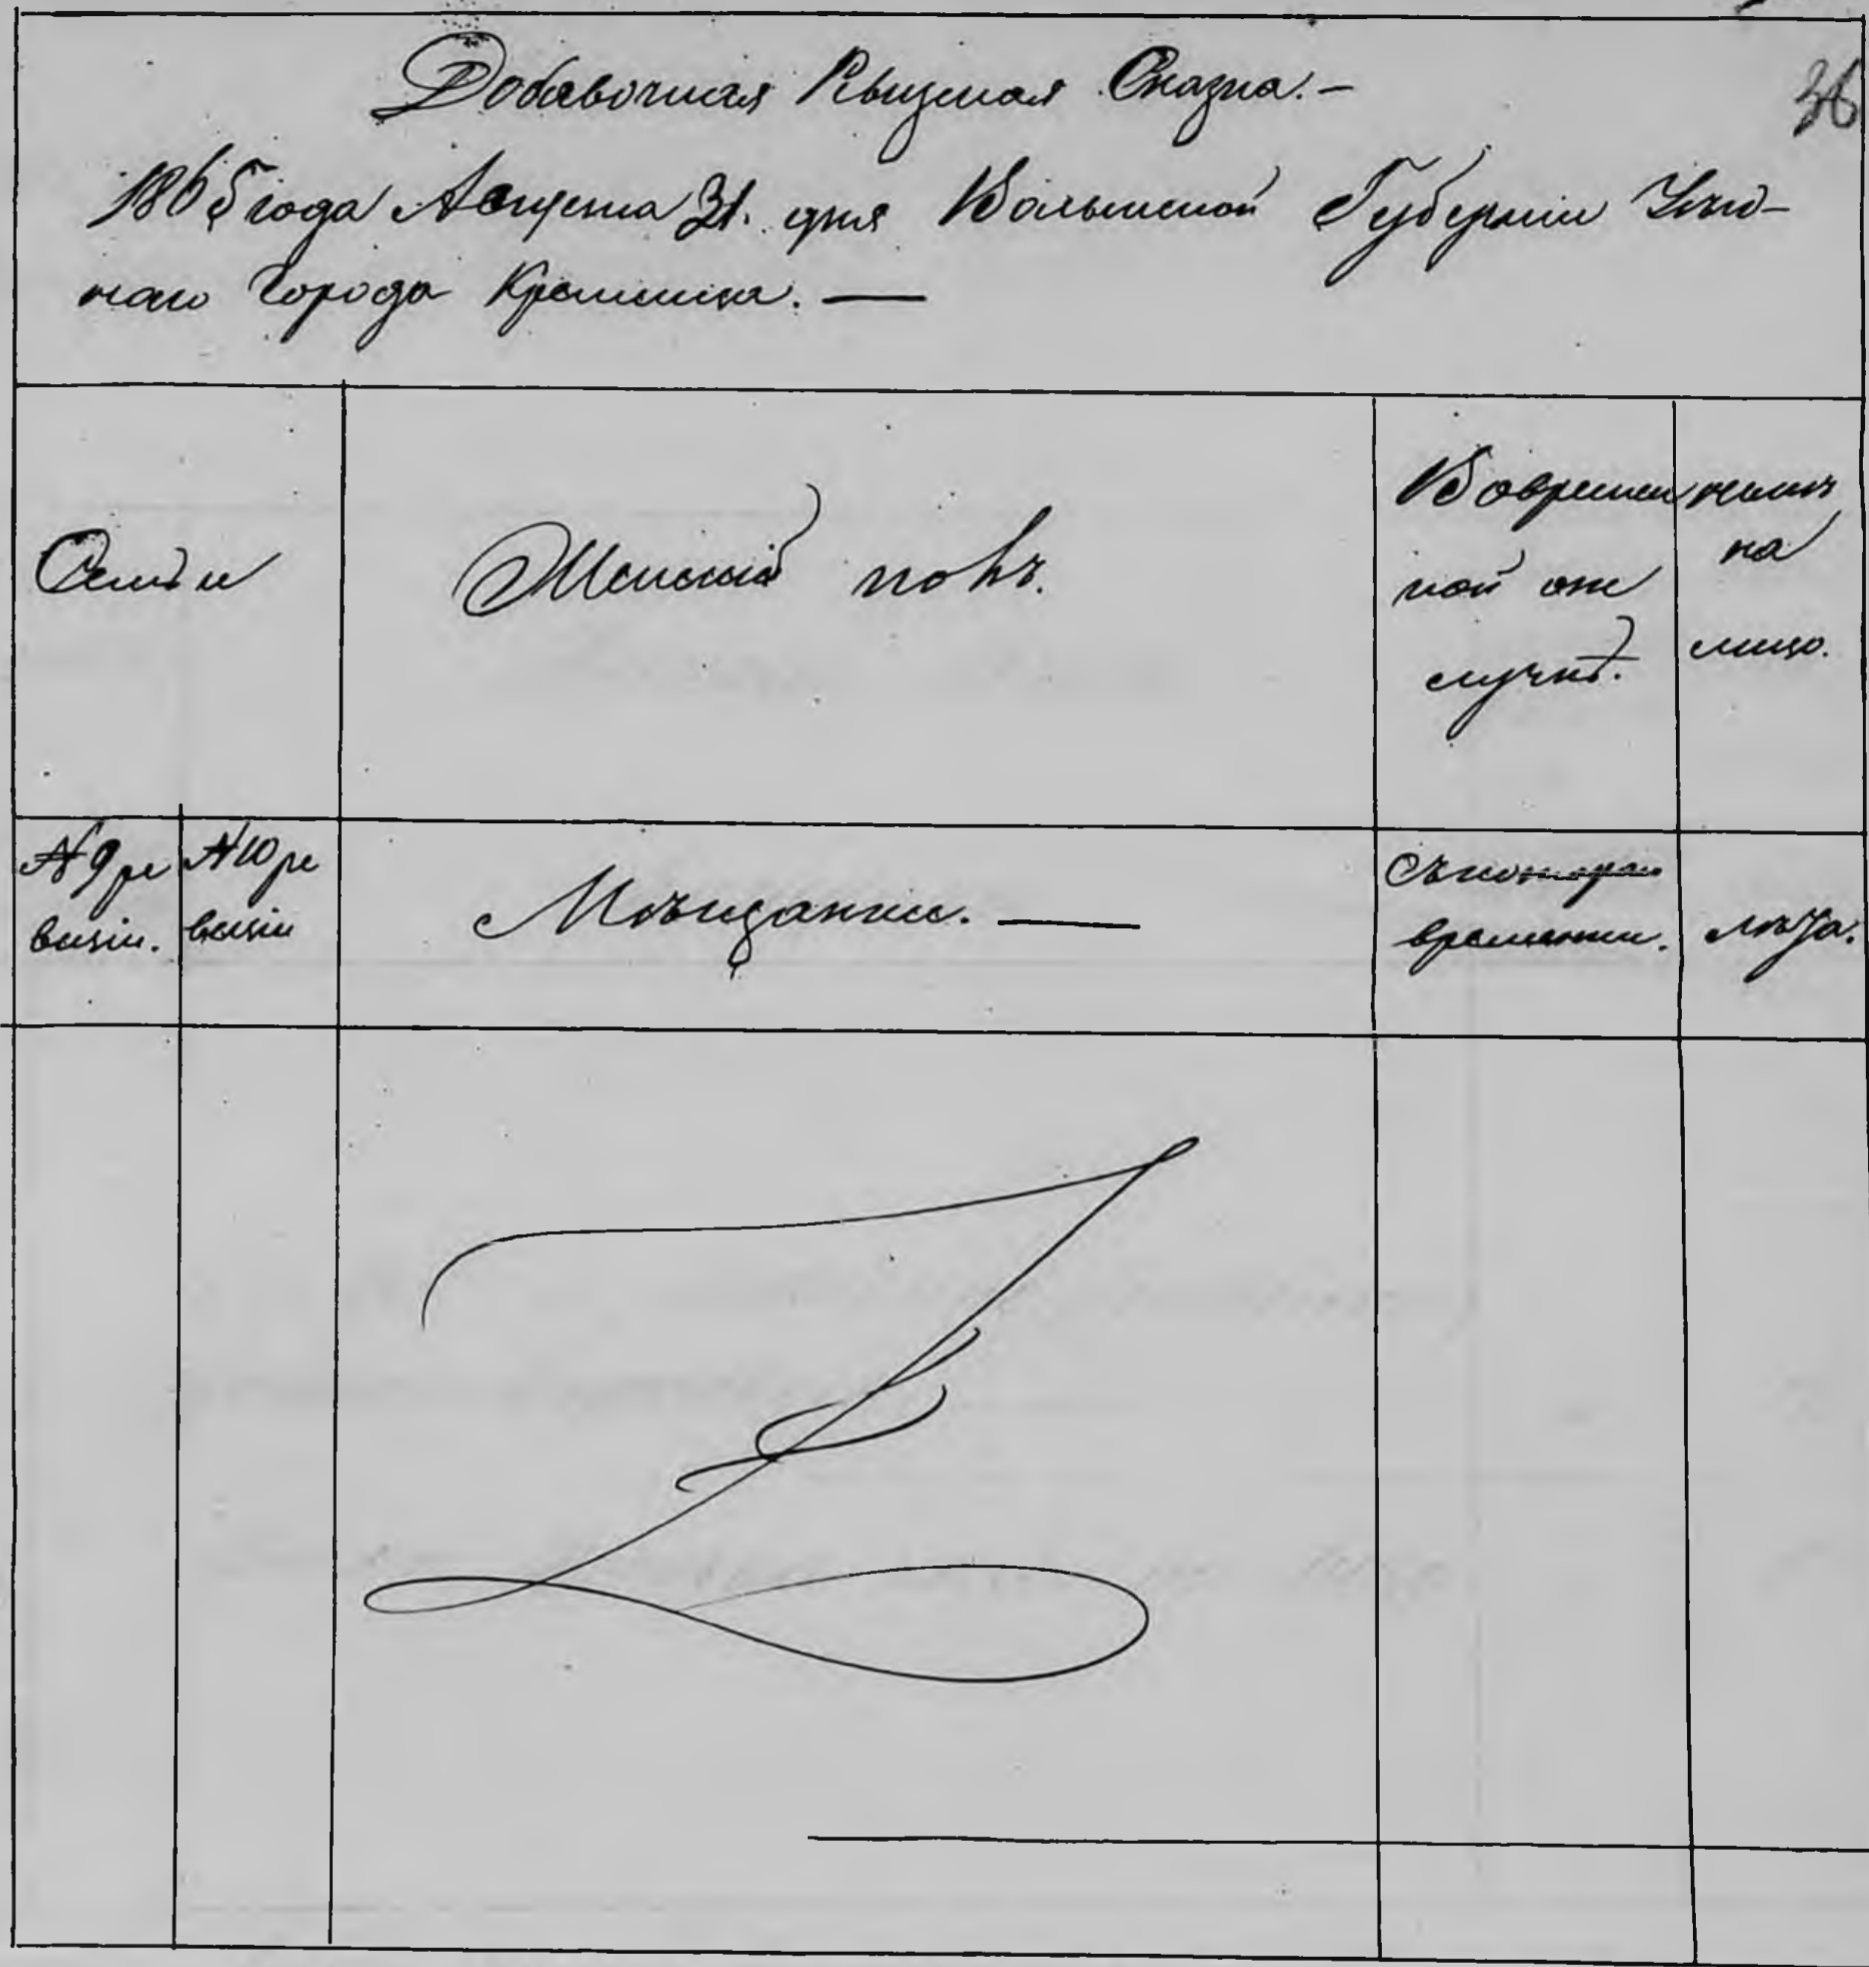 Добавочная Ревизская Сказка. –
36
1865 года Августа 31. дня Волынской Губерніи Уѣзд-
наго Города Кременца. —
Семьи
Женскій полъ.
Вовремен
ной отлучкѣ.
на
лицо.
№ 9 ре
визіи.
№ 10 ре
визіи
Мѣщанки. —
Съкотораго
времени.
лѣта.